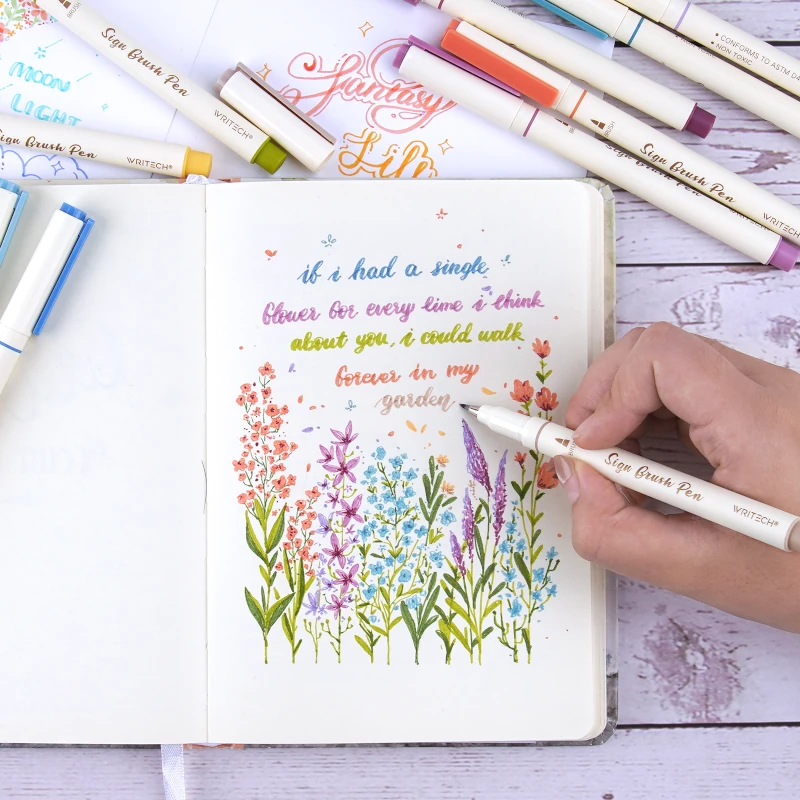 MOON
LIGHT
Sign Brush Pen
WRITECH®
Sign Brush Pen
WRITECH®
BRUSH
fantasy
• CONFORMS TO ASTM D4
• NON TOXIC
BRUSH
Sign Brush Pen
WRITECH
Brush Pen
WRITECH
if i had a single
flower for every time i think
about you, i could walk
forever in my
garden
BRUSH
Sign Brush Pen
WRITECH®